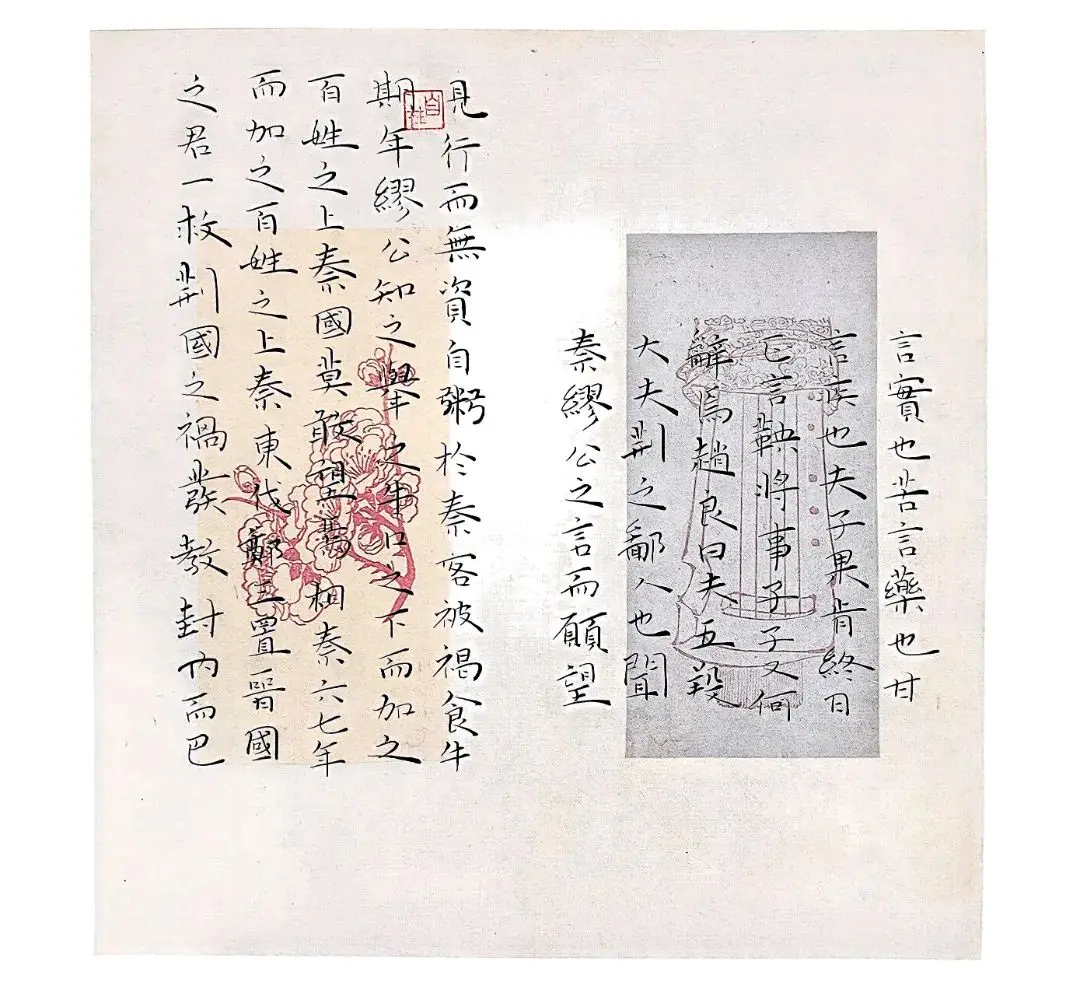 言實也苦言藥也甘
言疾也夫子果肯終日
正言鞅將事子子又何
辭焉趙良曰夫五羖
大夫荆之鄙人也聞
秦繆公之言而願望
見行而無資自粥於秦客被褐食牛
期年繆公知之舉之牛口之下而加之
百姓之上秦國莫敢望焉相秦六七年
而加之百姓之上秦東伐鄭三置晉國
之君一救荆國之禍發教封內而巴
自在